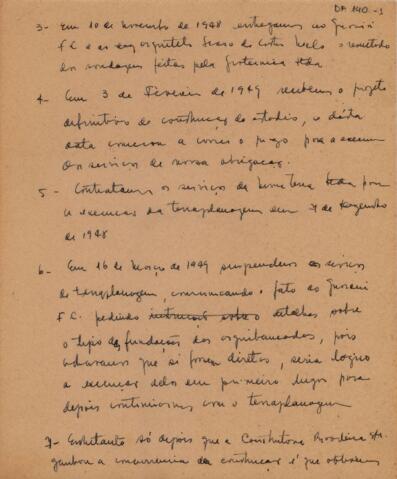 DA 140.-3
3- Em 10 de Novembro de 1948 entregamos ao Guarani
F.C. e ao engº arquiteto Icaro de Castro Mello o resultado
das sondagens feitas pela Geotecnica Ltda
4- Em 3 de Fevereiro de 1949 recebemos o projeto
definitivo de construção do estadio, e desta
data começou a correr o prazo para a execução
dos serviços de nossa obrigação.
5- Contratamos os serviços da Ltda para
a execução da terraplanagem em 7 de Dezembro
de 1948
6- Em 16 de Março de 1949 suspendemos os serviços
de terraplanagem, comunicando o fato ao Guarani
F.C. pedindo instruções sobre detalhes sobre
o tipo das fundações das arquibancadas, pois
achavamos que si forem diretas, seria logico
a execução delas em primeiro lugar para
depois continuarmos com a terraplanagem
7- Entretanto só depois que a Construtora Brasileira
ganhou a concorrencia da construção é que obtivemos